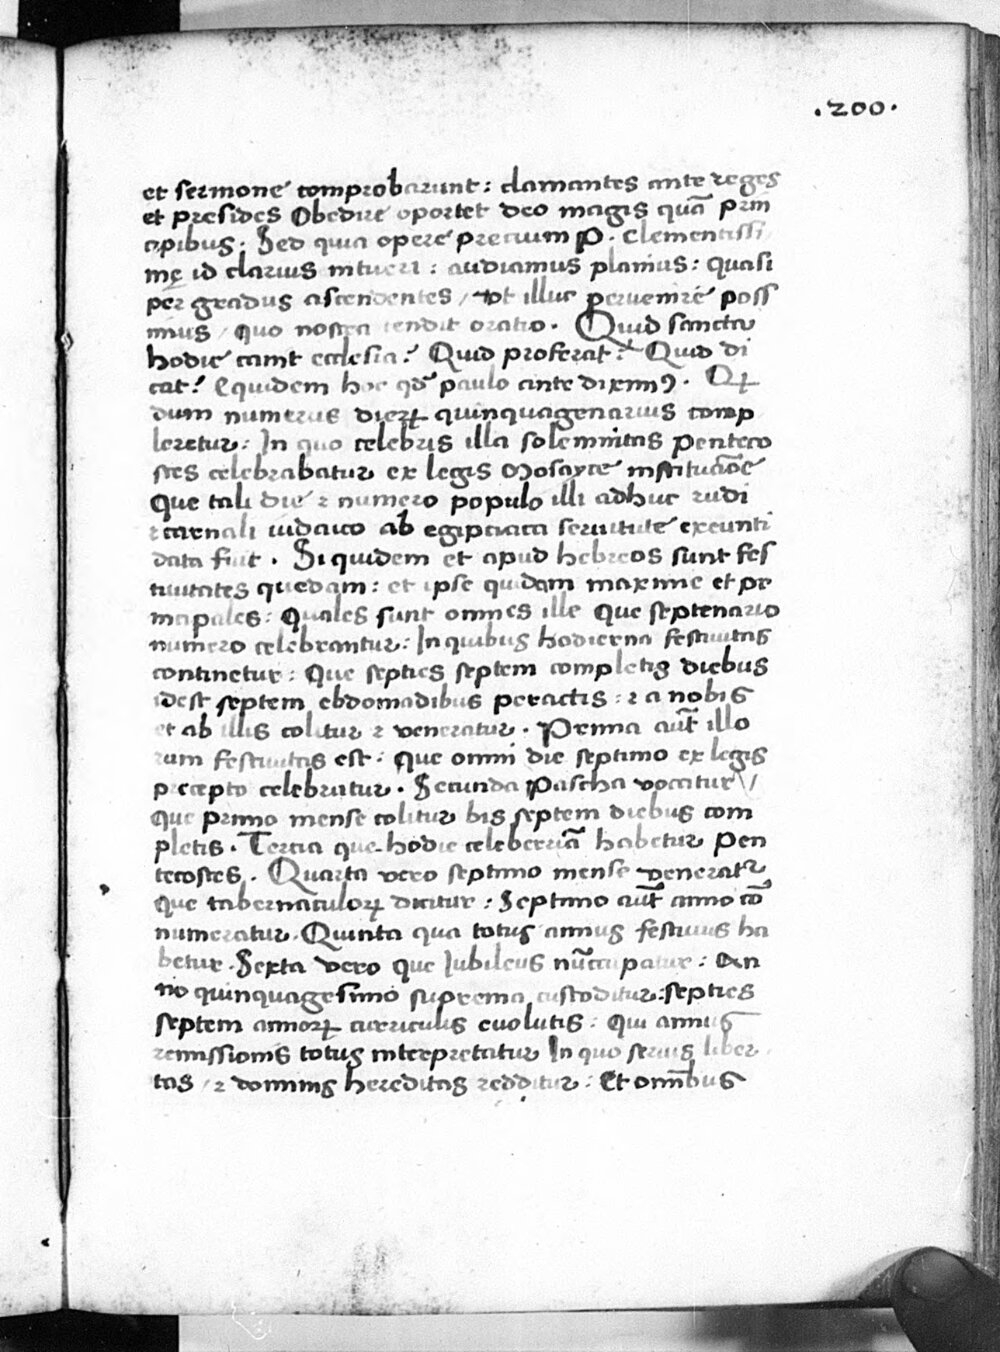 .200.
et sermone comprobarunt: clamantes ante reges
et presides Obedire oportet deo magis quã prin
cipibus. Sed quia opere precium P. Clementissi
mę id clarius intueri: audiamus planius: quasi
per gradus ascendentes / vt illuc pervenire poss
imus / quo nostra tendit oratio. Quid sancta
hodie canit ecclesia? Quid proferat? Quid di
cat? Equidem hoc qđ paulo ante diximꝰ. Qꝫ
dum numerus dieꝝ quinquagenarius comp
leretur: In quo celebris illa solemnitas penteco
stes celebrabatur ex legis Mosayce institucõe
Que tali die ⁊ numero populo illi adhuc rudi
⁊ carnali iudaico ab egipciaca seruitute exeunti
data fuit. Siquidem et apud hebreos sunt fes
tiuitates quedam: et ipse quidam maxime et pr
incipales: Quales sunt omnes ille Que septenario
numero celebrantur: In quibus hodierna festiuitas
continetur: Que septies septem completis diebus
idest septem ebdomadibus peractis: ⁊ a nobis
et ab illis colitur ⁊ veneratur. Prima aut̃ illo
rum festiuitas est: Que omni die septimo ex legis
precepto celebratur. Secunda Pascha vocatur //
Que primo mense colitur bis septem diebus com
pletis. Tercia que hodie celeberriã habetur Pen
tecostes. Quarta vero septimo mense veneratᷣ
Que tabernaculoꝝ dicitur: Septimo aut̃ anno cõ
numeratur. Quinta qua totus annus festiuus ha
betur. Sexta vero que Iubileus nũccupatur: An
no quinquagesimo suprema custoditur: septies
septem annoꝝ curriculis euolutis: Qui annus
remissionis totus interpretatur In quo seruis liber
tas / ⁊ dominis hereditas redditur: Et omnibus